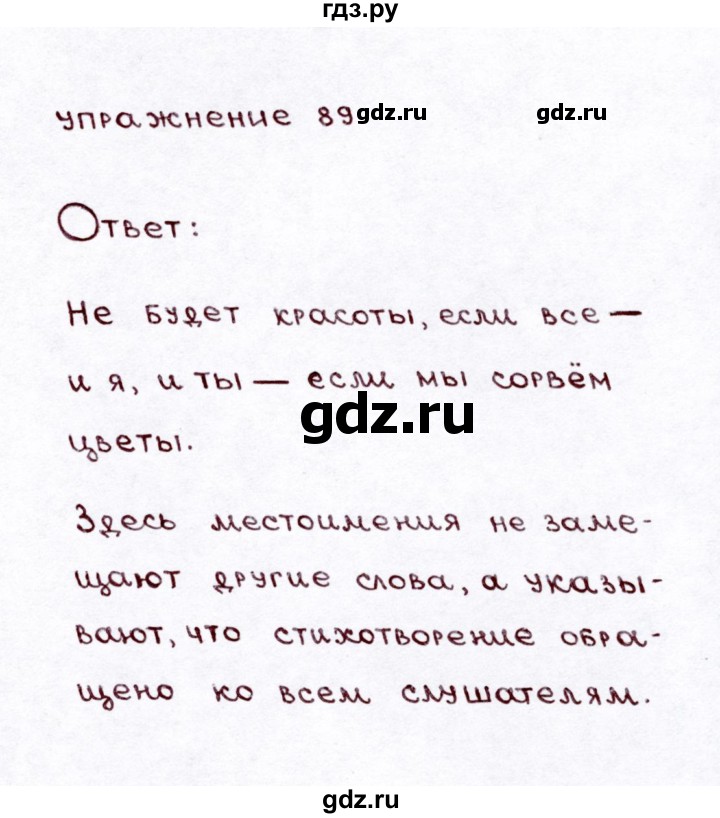 гдз.ру
упражнение 89 gdz.ru gdz.ru
Ответ:
Не будет красоты, если все —
и я, и ты — если мы сорвём
gdz.ru
цветы.
Здесь местоимения не заме-
щают другие слова, а указы-
вают, что стихотворение обра-
щено ко всем слушателям.
gdz.ru